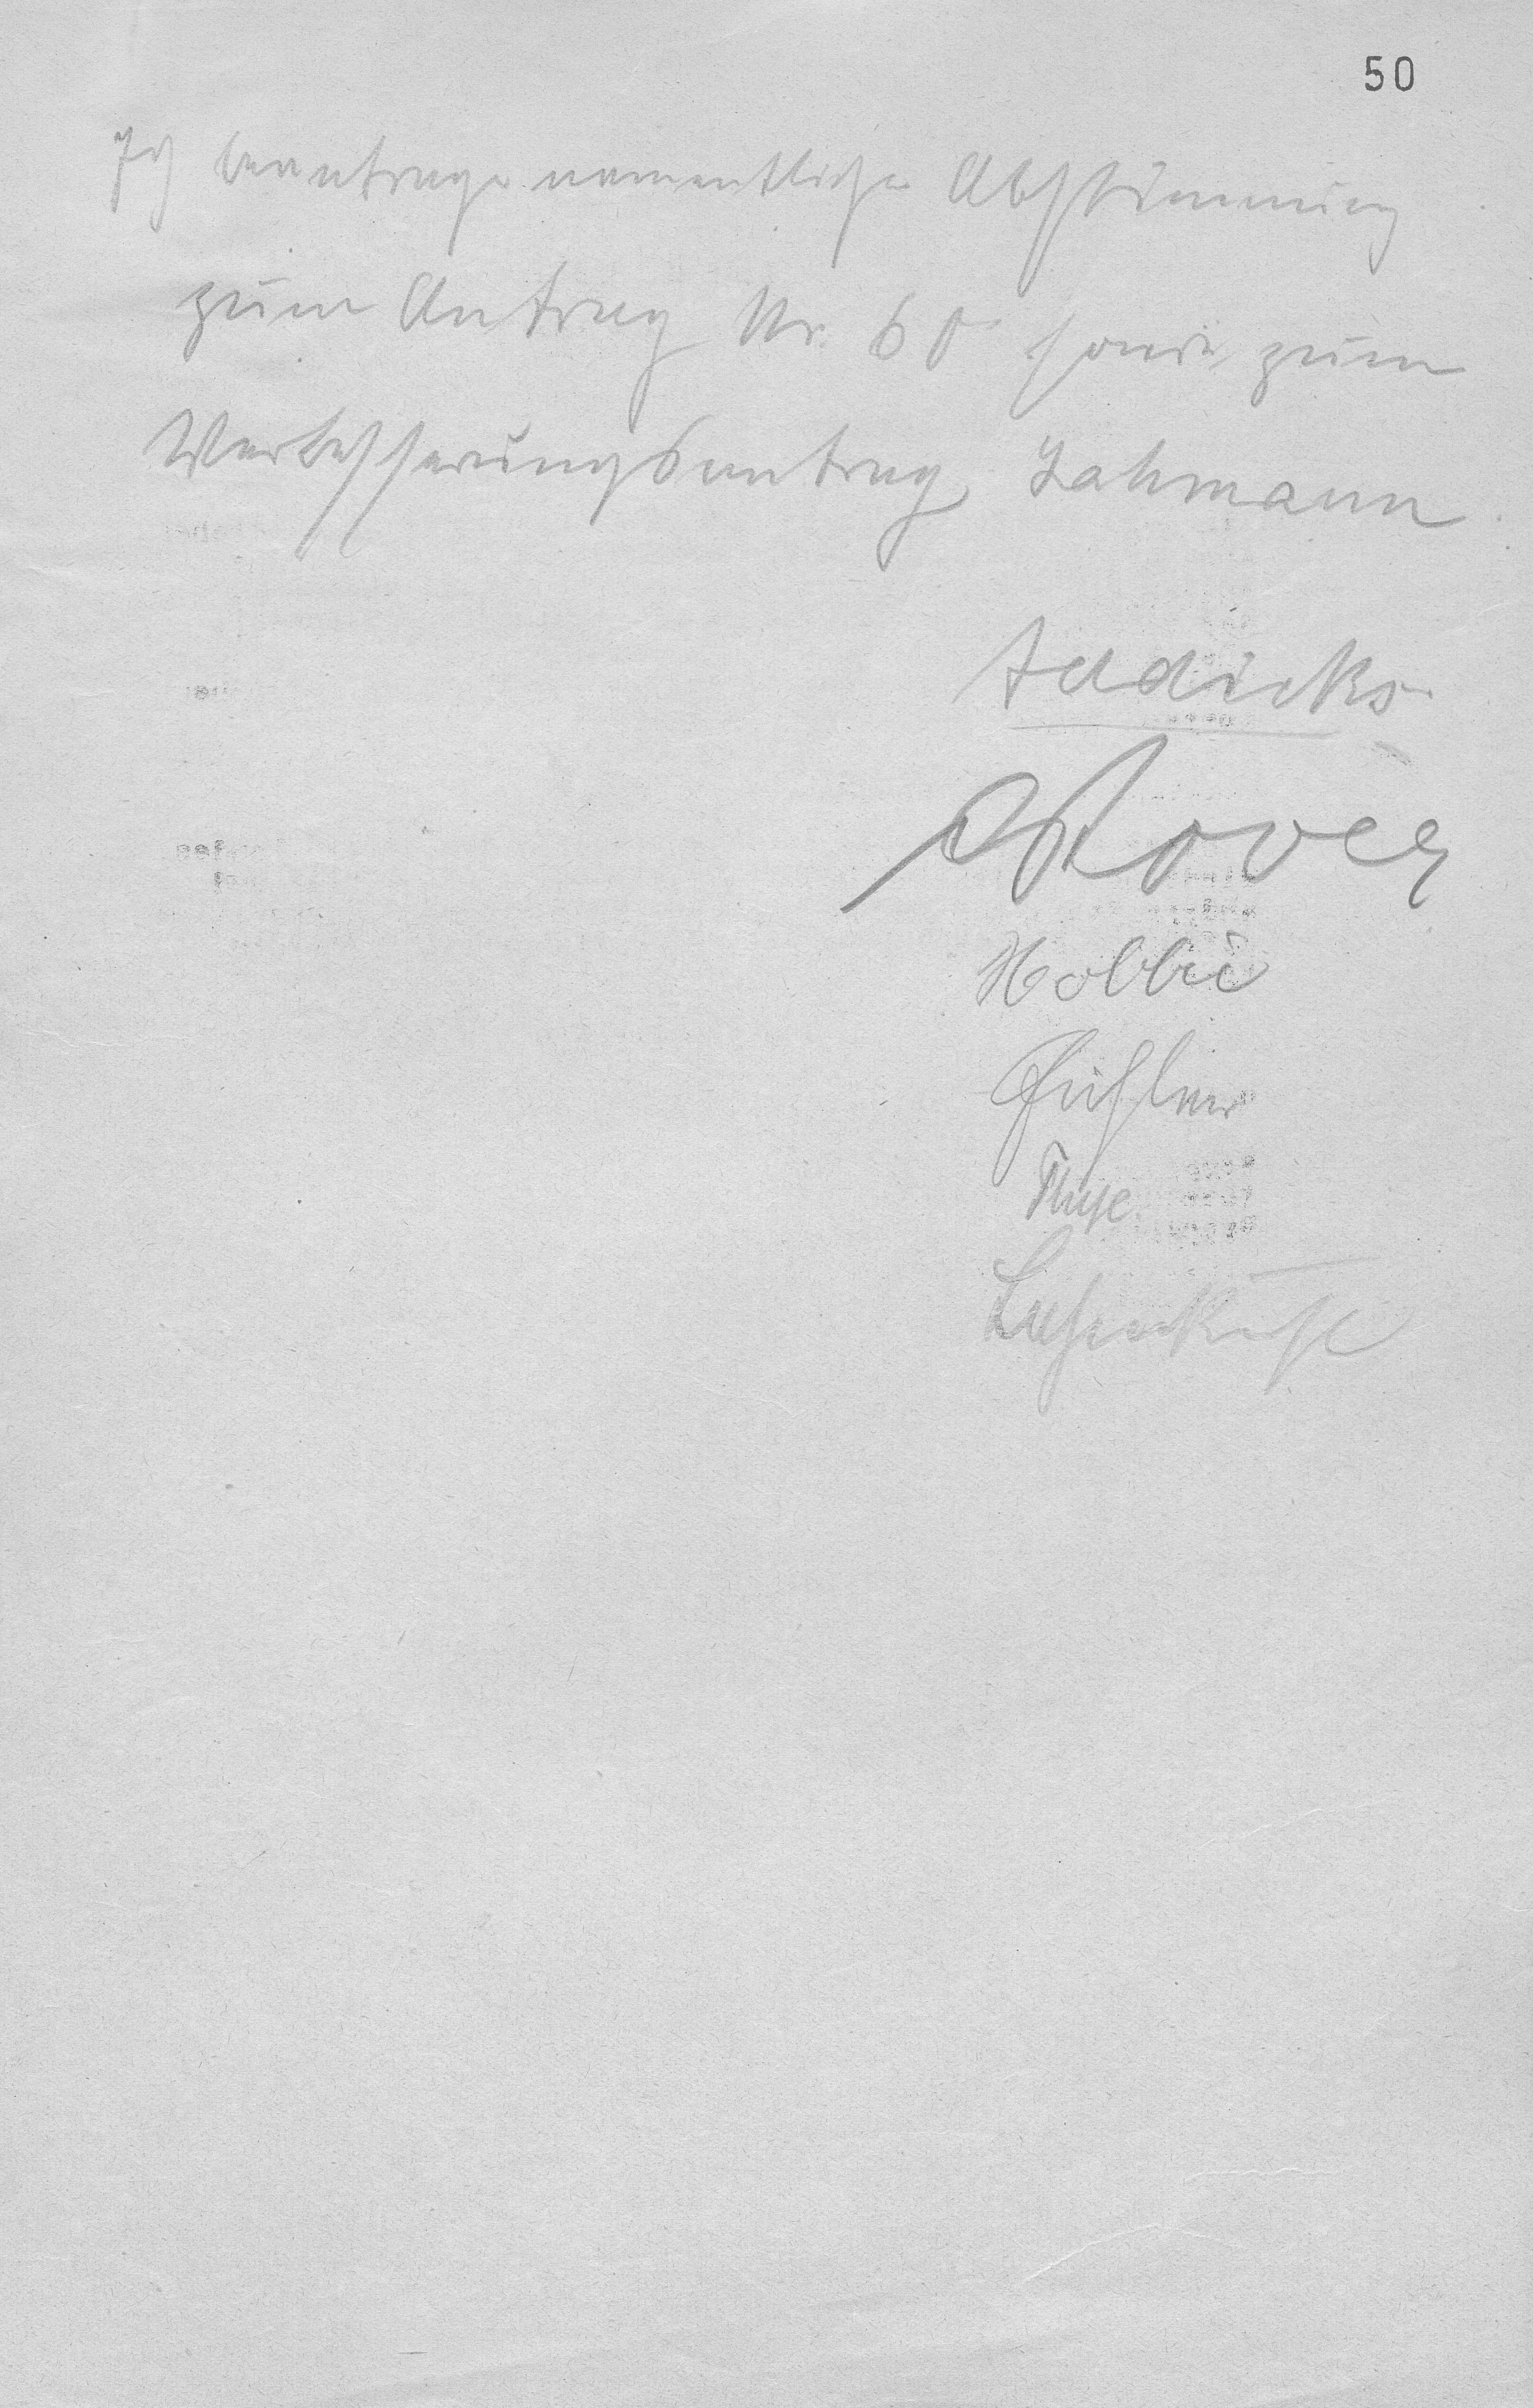 50
Ich beantrage namentliche Abstimmung
zum Antrag Nr. 60 sowie zum
Verbesserungsantrag Lahmann.
Addicks
Röver
Hobbie
Fischer
Thye